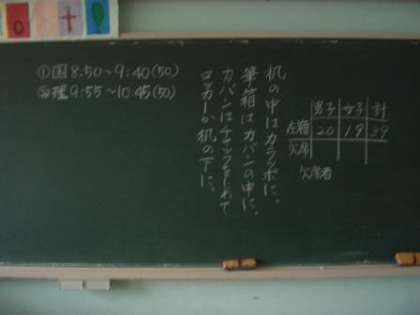 ①国 8:50~9:40(50)
②理 9:55~10:45(50)
机の中はカラッポに。
筆箱はカバンの中に。
カバンはチャックをしめて
ロッカーか机の下に。
男子 女子 計
在籍 20 19 39
欠席
欠席者